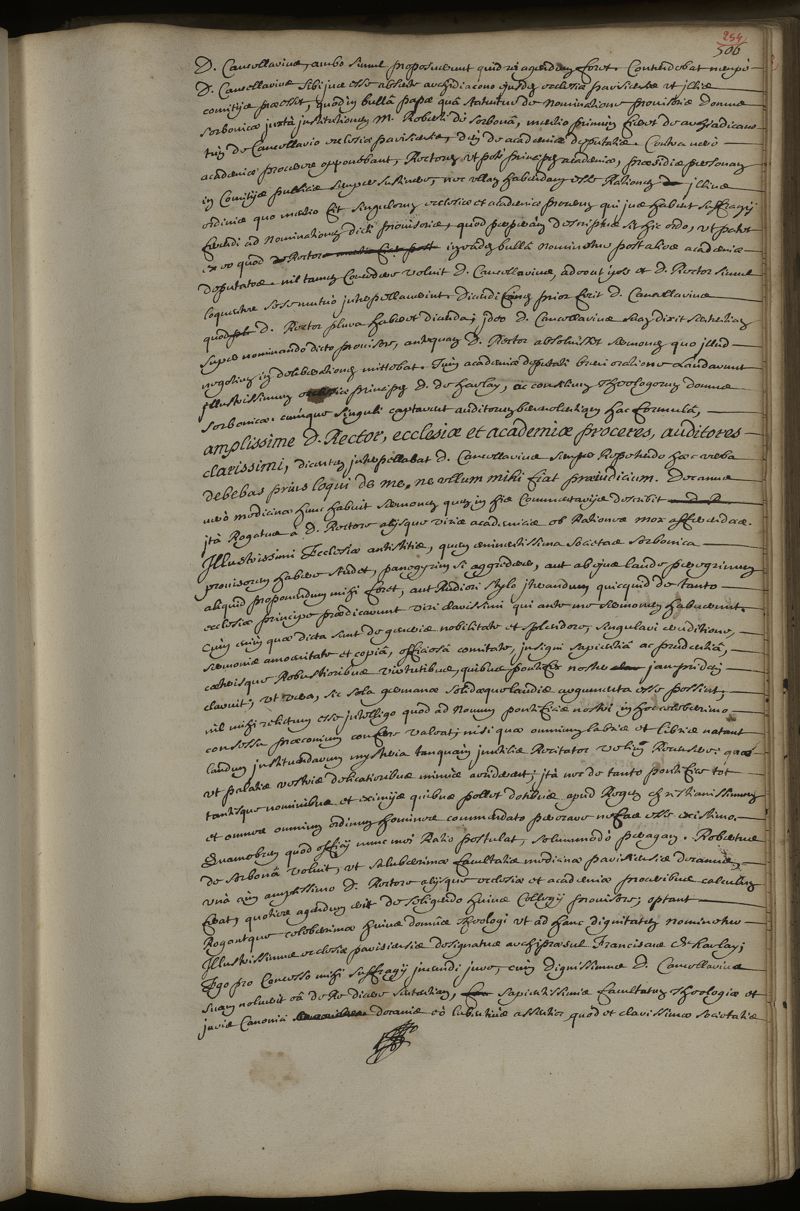 254
506
D. Cancellarius, ambo simul proposuerunt quid rei agendum foret. Contendebat nempè
D. Cancellarius sibi jus esse absente archidiacono ejusdem ecclesiæ parisiensis ut illis
comitijs præesset, quod in bullâ papæ quâ statutum de nominatione provisoris domus
sorbonicæ juxtà institutionem M. Roberti de Sorbonâ, mentio primùm fieret de archidiacono
tùm de Cancellario ecclesiæ parisiensis, dein de academiæ deputatis. Contra verò
academiæ proceres opponebant, Rectorem ut potè principem academiæ, præsidis personam
in Comitijs publicis semper sustinere, nec ullam habendam esse Rationem illius
ordinis quo mentio fit singulorum ecclesiæ et academiæ procerum qui jus habent suffragij
ferendi ad nominationem dicti provisoris, quod perperam descriptus sit hic ordo, ut patet
ex eo quod in eâdem bullâ nominetur post alios academiæ
deputatos. nil tamen Concedere voluit D. Cancellarius, adeout ipse et D. Rector simul
loquentes sese mutuò interpellaverint. Dicendi finem prior fecit D. Cancellarius
quod D. Rector plura haberet dicenda; ideo D. Cancellarius suam dixit sententiam
super nominando dicto provisore, antequam D. Rector absolvisset sermonem quo illud
negotium in deliberationem mittebat. Tùm academiæ deputati brevi oratione Laudarunt
illustrissimum ecclesiæ principem D. de harlay, ac consilium Theologorum domus
sorbonicæ. cùmque singuli captarent auditorum benevolentiam hac formulâ,
amplissime D. Rector, ecclesiæ et academiæ proceres, auditores
clarissimi, dicentem interpellabat D. Cancellarius sæpe Repetendo hæc verba
debebas priùs loqui de me, ne ullum mihi fiat præiudicium. Decanus
verò medicinæ hunc habuit sermonem quem in his Commentarijs describit
ità Rogatus à D. Rectore alijsque viris academicis ob Rationes mox afferendas.
Illustrissimi Ecclesiæ antistitis, quem eminentissima societas sorbonica
provisorem habere studet, panegyrim si aggrederer, aut ab ejus laude peregrinum
aliquid proponendum mihi foret, aut Rudiori stylo iterandum quicquid de tanto
ecclesiæ principe prædicarunt viri clarissimi qui ante me sermonem habuerunt.
Cùm enim quæ dicta sunt de generis nobilitate et splendore, singulari eruditione,
sermonis amœnitate et copiâ, officiosâ comitate, insigni sapientiâ ac prudentiâ,
cæterisque Robustioribus virtutibus, quibus pontifex noster jampridem
claruit, ut vera, sic sola germanæ solidæque laudis argumenta esse possint,
nil mihi relictum esse intelligo quod ad novum pontificis nostri in hoc celeberrimo
consessu præconium conferre valeat; nisi quæ omnium labris et libris natant
laudum justitiarum mysteria tanquam inutilis Recitator velim Recensere; quæ
ut palatis vestris delicatioribus minùs arriderent; ità nec de tanto pontifice tot
tantisque nominibus et eximijs quibus pollet dotibus apud Regem christianissimum
et omnes omnium ordinum homines commendato perorare nefas esse existimo.
Quamobrem quod officij nunc mei Ratio postulat, solummodò peragam. Robertus
de sorbonâ voluit, ut saluberrimæ facultatis medicinæ parisiensis decanus,
unà cùm amplissimo D. Rectore alijsque ecclesiæ et academiæ proceribus calculum
ferat, quoties agendum erit de seligendo huius Collegij provisore; optant
Rogantque celeberrimæ huius domûs Theologi ut ad hanc dignitatem nominetur
Illustrissimus ecclesiæ parisiensis designatus archipræsul Franciscus de harlay;
Ego pro Concesso mihi suffragij ineundi jure, cùm Dignissimus D. Cancellarius
suam noluerit eâ de Re dicere sententiam, sapientissimis facultatum Theologiæ et
juris Canonici decanis eò lubentiùs assentior, quod et clarissimæ societatis